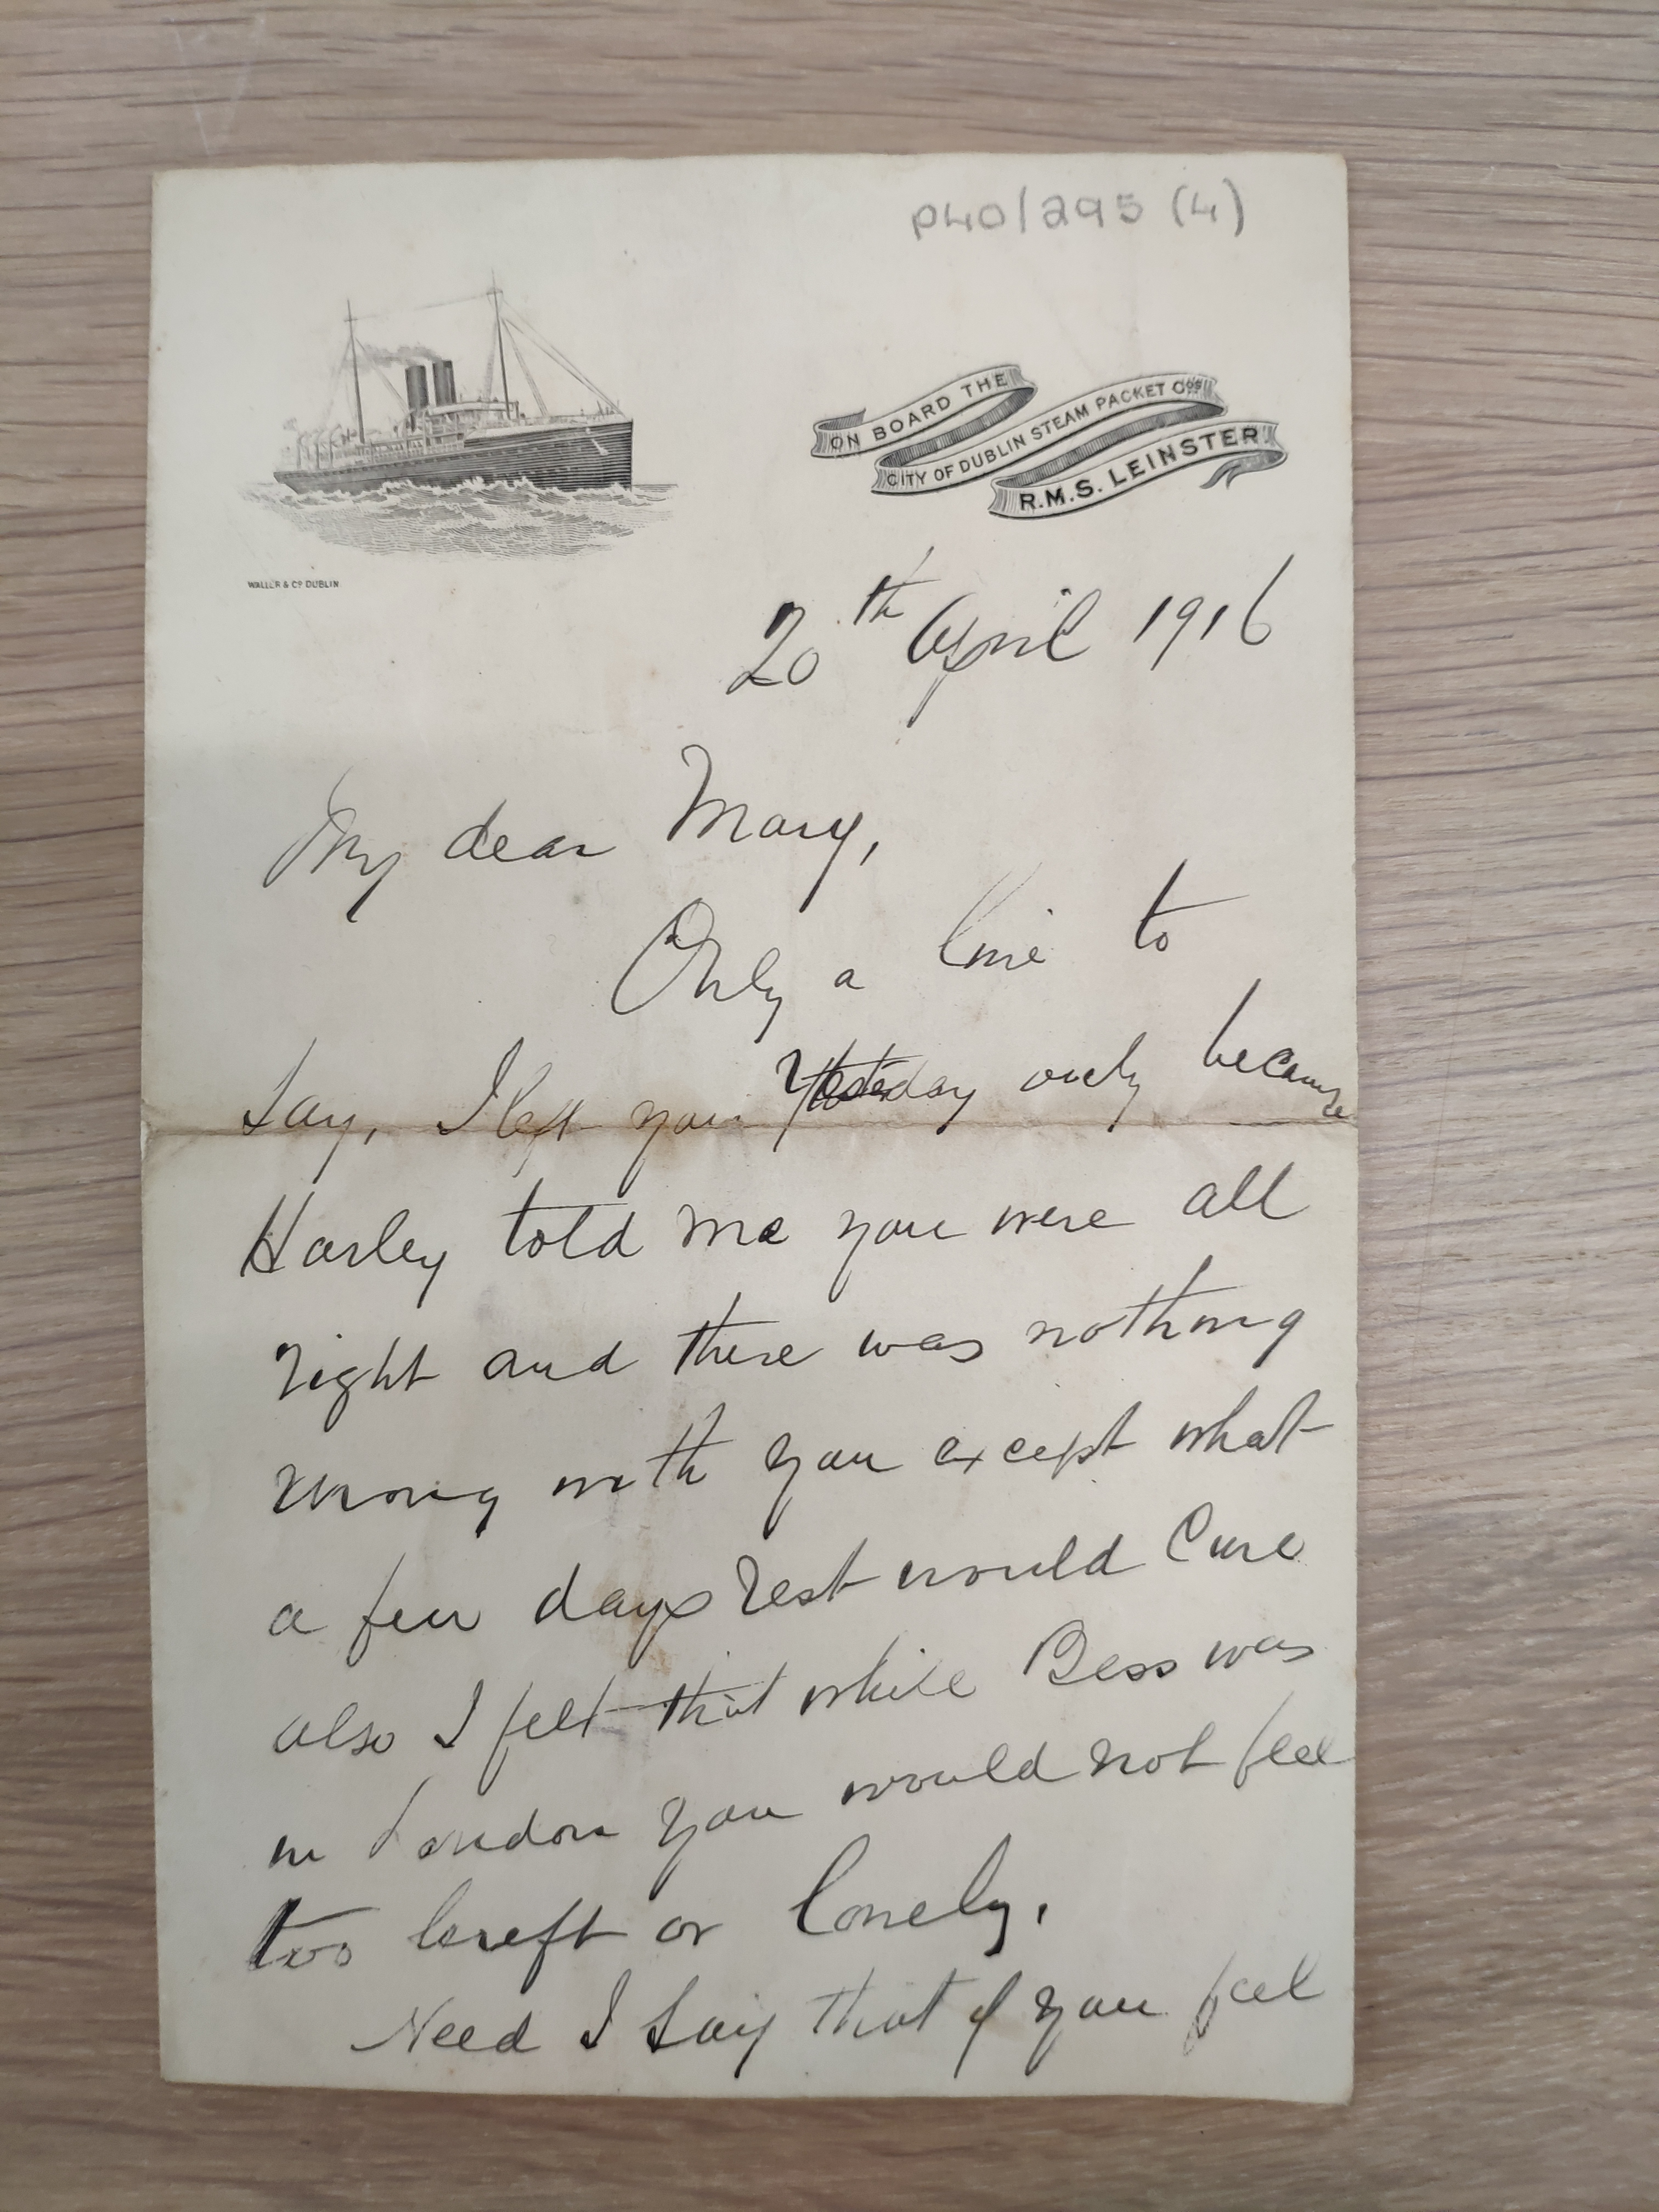 P40/295 (4)
ON BOARD THE
CITY OF DUBLIN STEAM PACKET Cos
R.M.S. LEINSTER
WALLER & Co DUBLIN
20th April 1916
My dear Mary,
Only a line to
say, I left you yesterday only because
Harley told me you were all
right and there was nothing
wrong with you except what
a few days rest would cure
also I felt that while Bess was
in London you would not feel
too bereft or lonely.
Need I say that if you feel